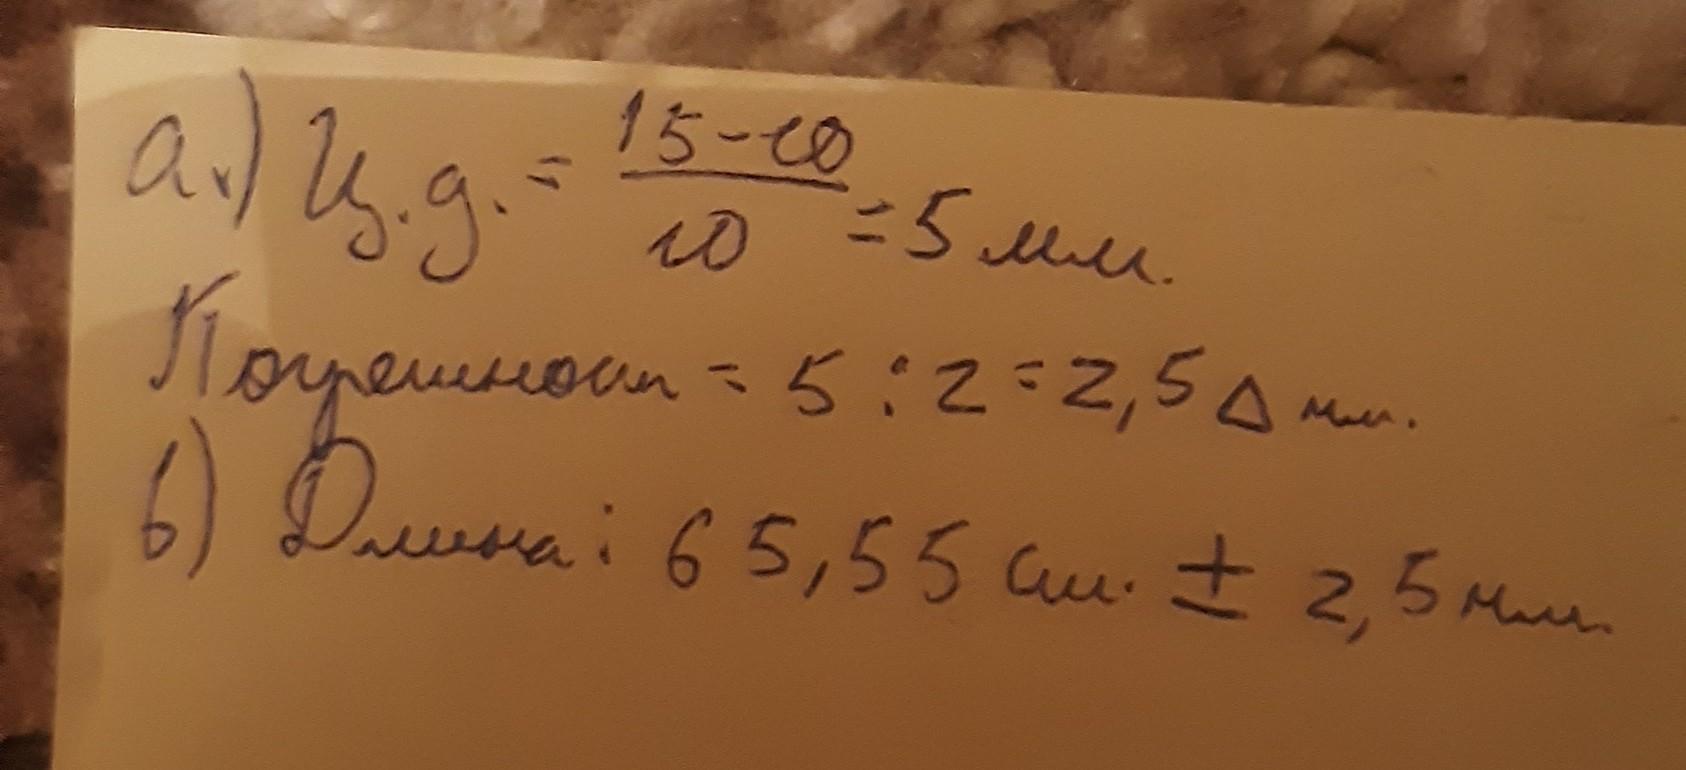 а.) Ц.д. = 15-10 / 10 = 5 мм.
Погрешност = 5 : 2 = 2,5 Δ мм.
б) Длина: 65,55 см. ± 2,5 мм.